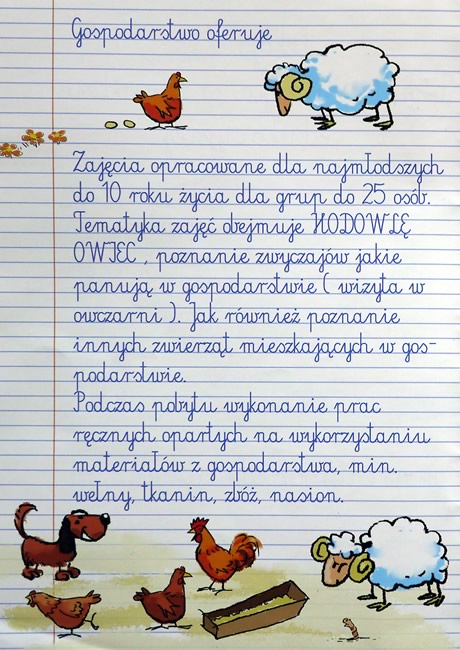 Gospodarstwo oferuje
Zajęcia opracowane dla najmłodszych
do 10 roku życia dla grup do 25 osób.
Tematyka zajęć obejmuje HODOWLĘ
OWIEC , poznanie zwyczajów jakie
panują w gospodarstwie ( wizyta w
owczarni ). Jak również poznanie
innych zwierząt mieszkających w gos-
podarstwie.
Podczas pobytu wykonanie prac
ręcznych opartych na wykorzystaniu
materiałów z gospodarstwa, min.
wełny, tkanin, zbóż, nasion.